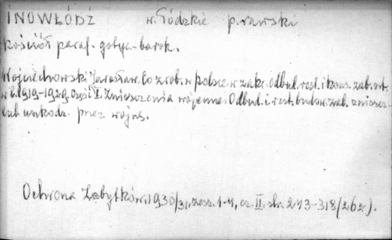 INOWŁÓDŹ w. łódzkie p. rawski
kościół paraf. gotyc.-barok.
Wojciechowski Jarosław. Co zrob. w Polsce w zakr. odbud. rest. i kons. zab.
w l. 1919-1929. Część I. Zniszczenia wojenne. Odbud. i rest. budow. zab. zniszcz.
lub uszkodz. przez wojnę.
Ochrona Zabytków. 1930/31, zesz. 1-4, cz. II. str. 243-318 (262).